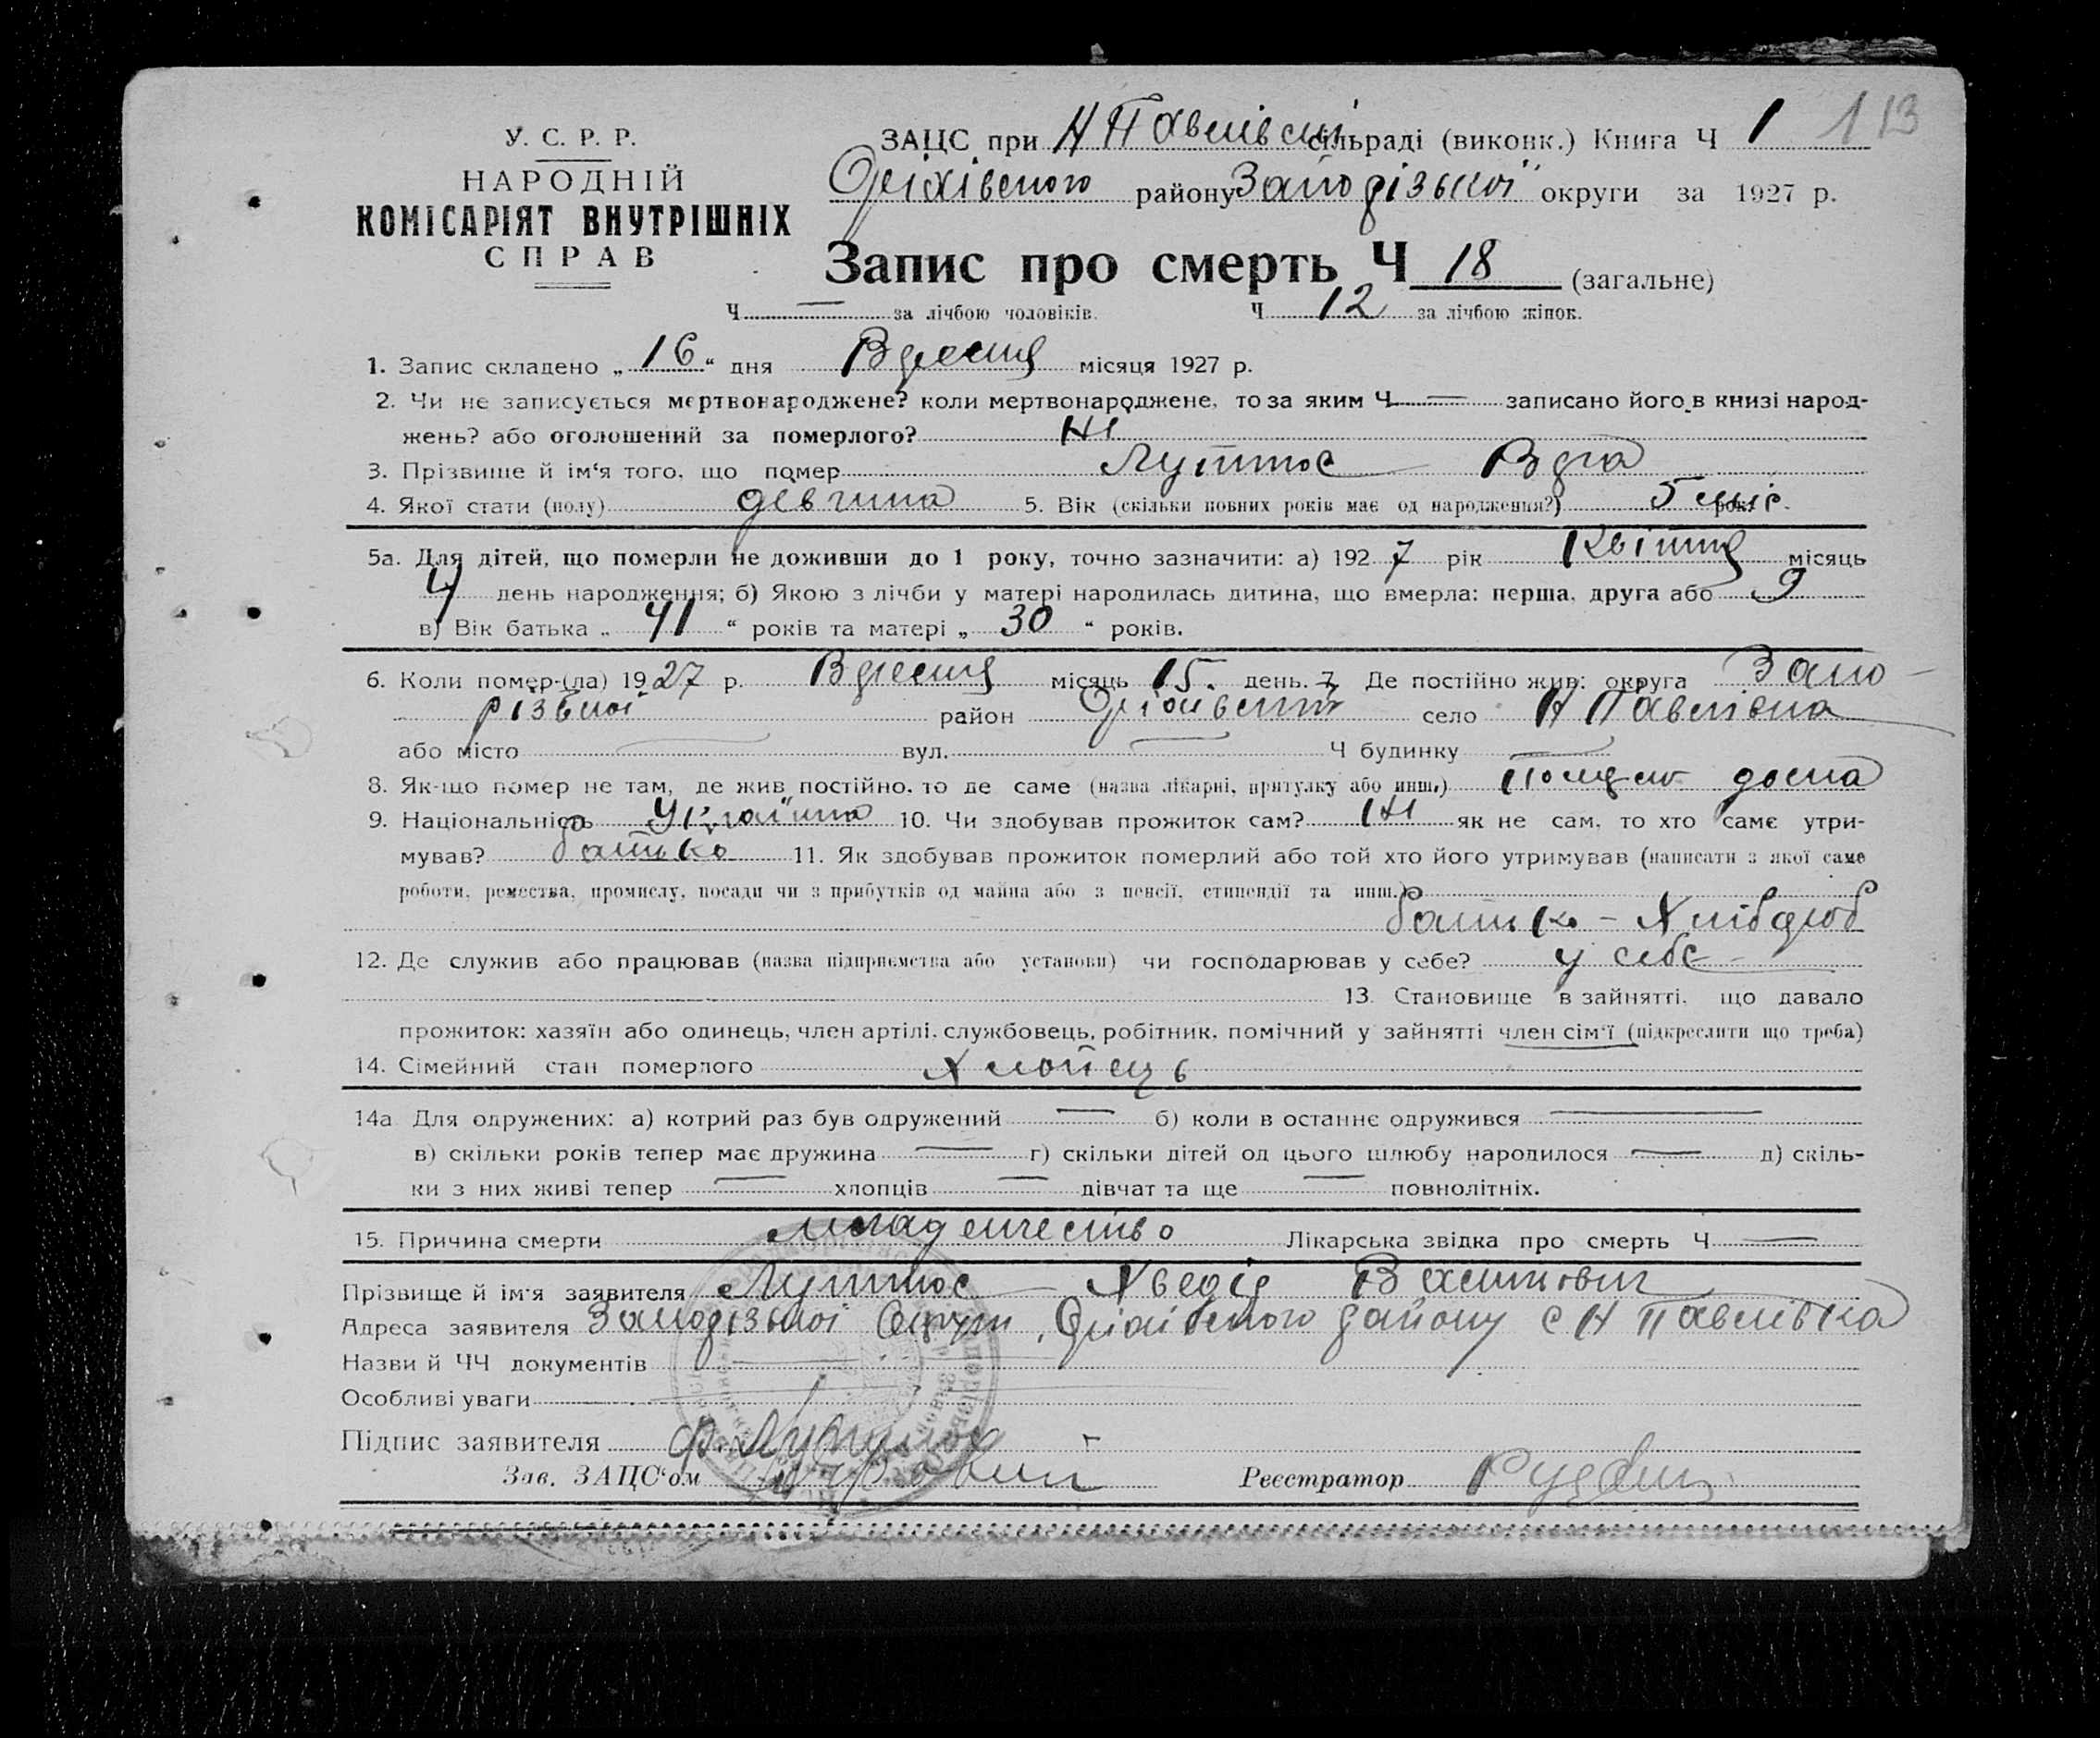 У. С. Р. Р.
НАРОДНІЙ
КОМІСАРІЯТ ВНУТРІШНІХ
СПРАВ
ЗАЦС при Н Павлівській сільраді (виконк.) Книга Ч 1 113
Оріхівського району Запорізької округи за 1927 р.
Запис про смерть Ч 18 (загальне)
Ч — за лічбою чоловіків. Ч 12 за лічбою жінок.
1. Запис складено „ 16 “ дня Вресня місяця 1927 р.
2. Чи не записується мертвонароджене? коли мертвонароджене, то за яким Ч — записано його в книзі народ-
жень? або оголошений за померлого? Ні
3. Прізвище й ім‘я того, що помер Луттос Віра
4. Якої стати (полу) девчина 5. Вік (скільки повних років має од народження?) 5 міс. рок.
5а. Для дітей, що померли не доживши до 1 року, точно зазначити: а) 1927 рік Квітня місяць
4 день народження; б) Якою з лічби у матері народилась дитина, що вмерла: перша, друга або 9
в) Вік батька „ 41 “ років та матері „ 30 “ років.
6. Коли помер-(ла) 1927 р. Вресня місяць 15. день. 7. Де постійно жив: округа Запо-
різької район Оріхівський село Н Павлівка
або місто — вул. — Ч будинку —
8. Як-що помер не там, де жив постійно, то де саме (назва лікарні, притулку або инш.) помер дома
9. Національність Україна 10. Чи здобував прожиток сам? Ні як не сам, то хто саме утри-
мував? батько 11. Як здобував прожиток померлий або той хто його утримував (написати з якої саме
роботи, ремества, промислу, посади чи з прибутків од майна або з пенсії, стипендії та инш.)
батько - Хлібороб
12. Де служив або працював (назва підприємства або установи) чи господарював у себе? у себе
13. Становище в зайнятті, що давало
прожиток: хазяїн або одинець, член артілі, службовець, робітник, помічний у зайнятті член сім‘ї (підкреслити що треба)
14. Сімейний стан померлого Хлопець
14а Для одружених: а) котрий раз був одружений — б) коли в останнє одружився —
в) скільки років тепер має дружина — г) скільки дітей од цього шлюбу народилося — д) скіль-
ки з них живі тепер — хлопців — дівчат та ще — повнолітніх.
15. Причина смерти младенчество Лікарська звідка про смерть Ч —
Прізвище й ім‘я заявителя Луттос Хведір
Адреса заявителя Запорізької Округи, Оріхівського району с Н Павлівка
Назви й ЧЧ документів —
Особливі уваги —
Підпис заявителя
Зав. ЗАЦС‘ом Реєстратор